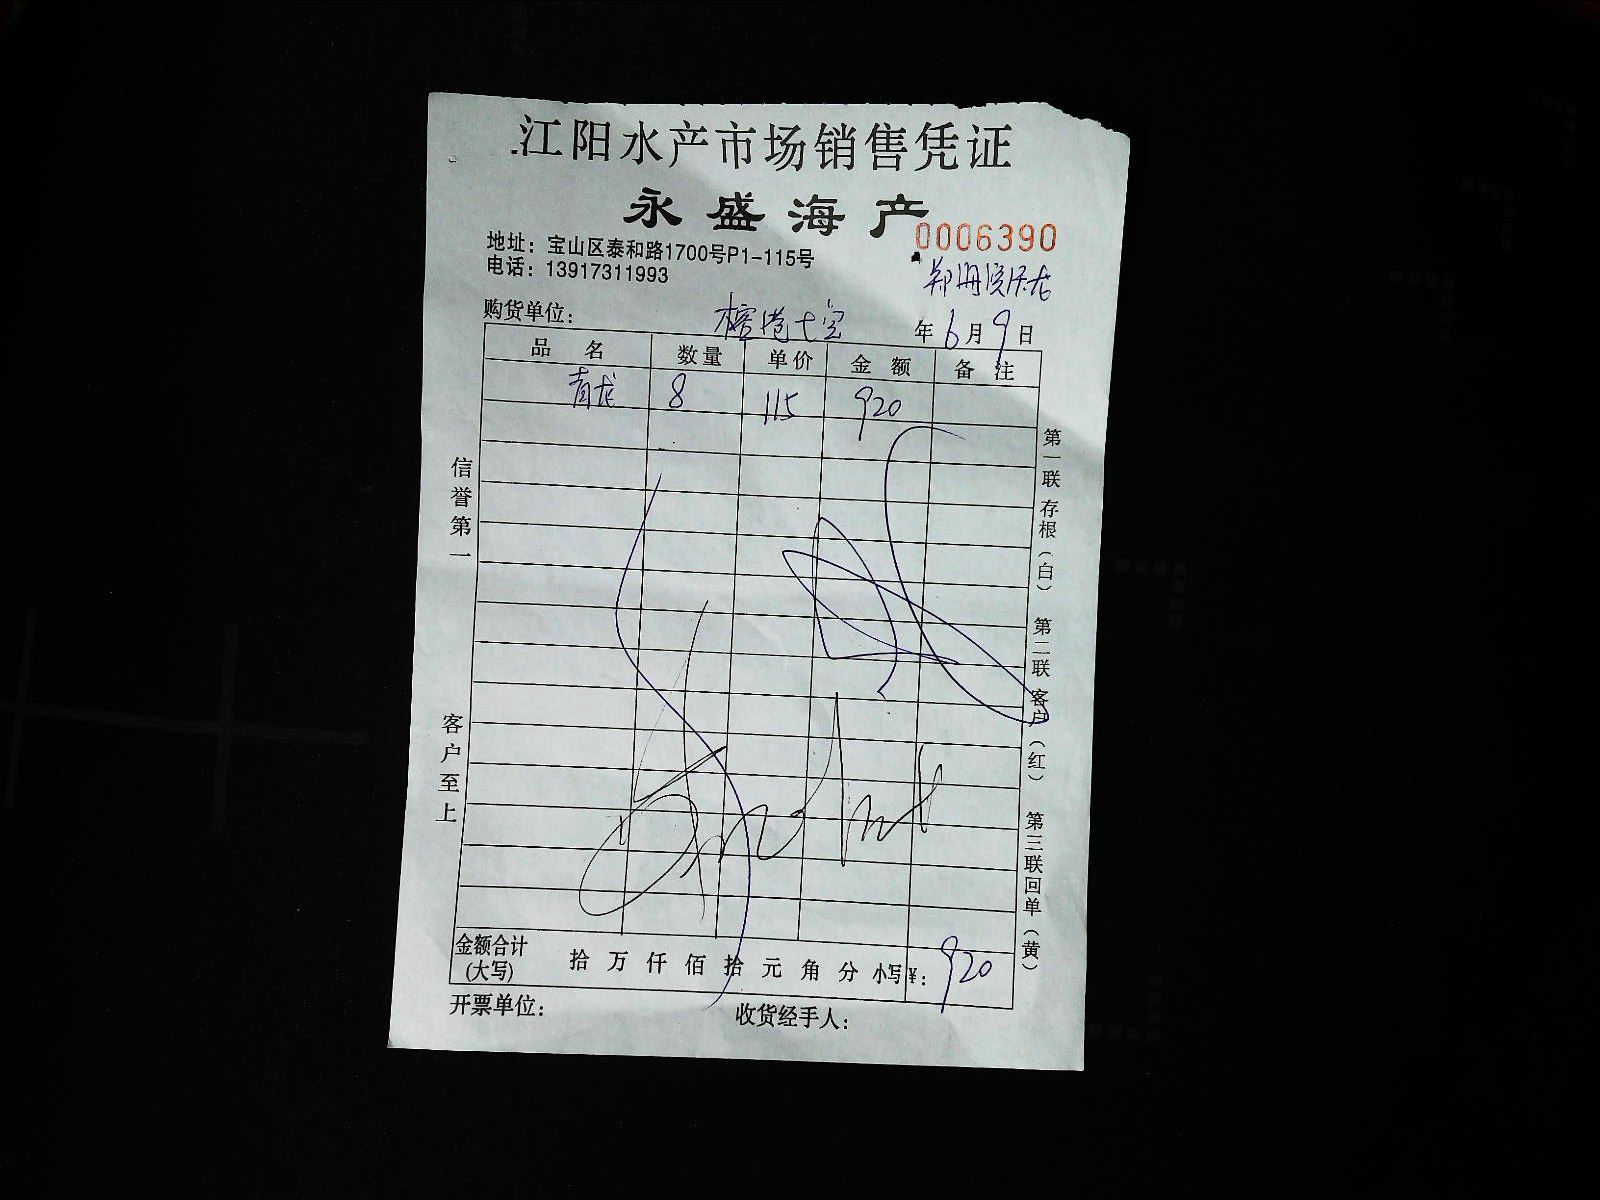 江阳水产市场销售凭证
永盛海产
0006390
地址：宝山区泰和路1700号P1-115号
电话：13917311993
购货单位：
年 6 月 9 日
品 名 数量 单价 金 额 备 注
青龙 8 115 920
信誉第一
客户至上
第一联 存根（白） 第二联 客户（红） 第三联 回单（黄）
金额合计 (大写) 拾 万 仟 佰 拾 元 角 分 小写¥：920
开票单位： 收货经手人：